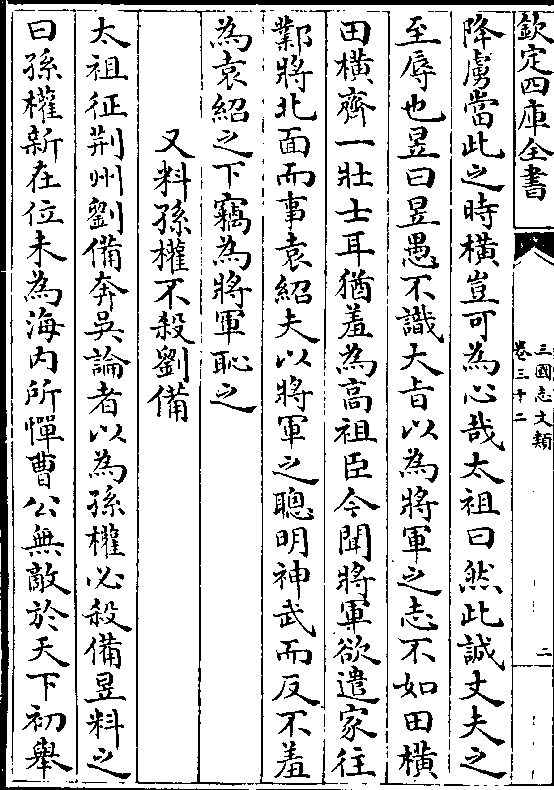 欽定四庫全書
三國志文類
卷三十二
二
降虜當此之時橫豈可為心哉太祖曰然此誠丈夫之
至辱也昱曰昱愚不識大旨以為將軍之志不如田橫
田橫齊一壯士耳猶羞為高祖臣今聞將軍欲遣家往
鄴將北面而事袁紹夫以將軍之聰明神武而反不羞
為袁紹之下竊為將軍恥之
又料孫權不殺劉備
太祖征荆州劉備奔吳論者以為孫權必殺備昱料之
曰孫權新在位未為海内所憚曹公無敵於天下初舉